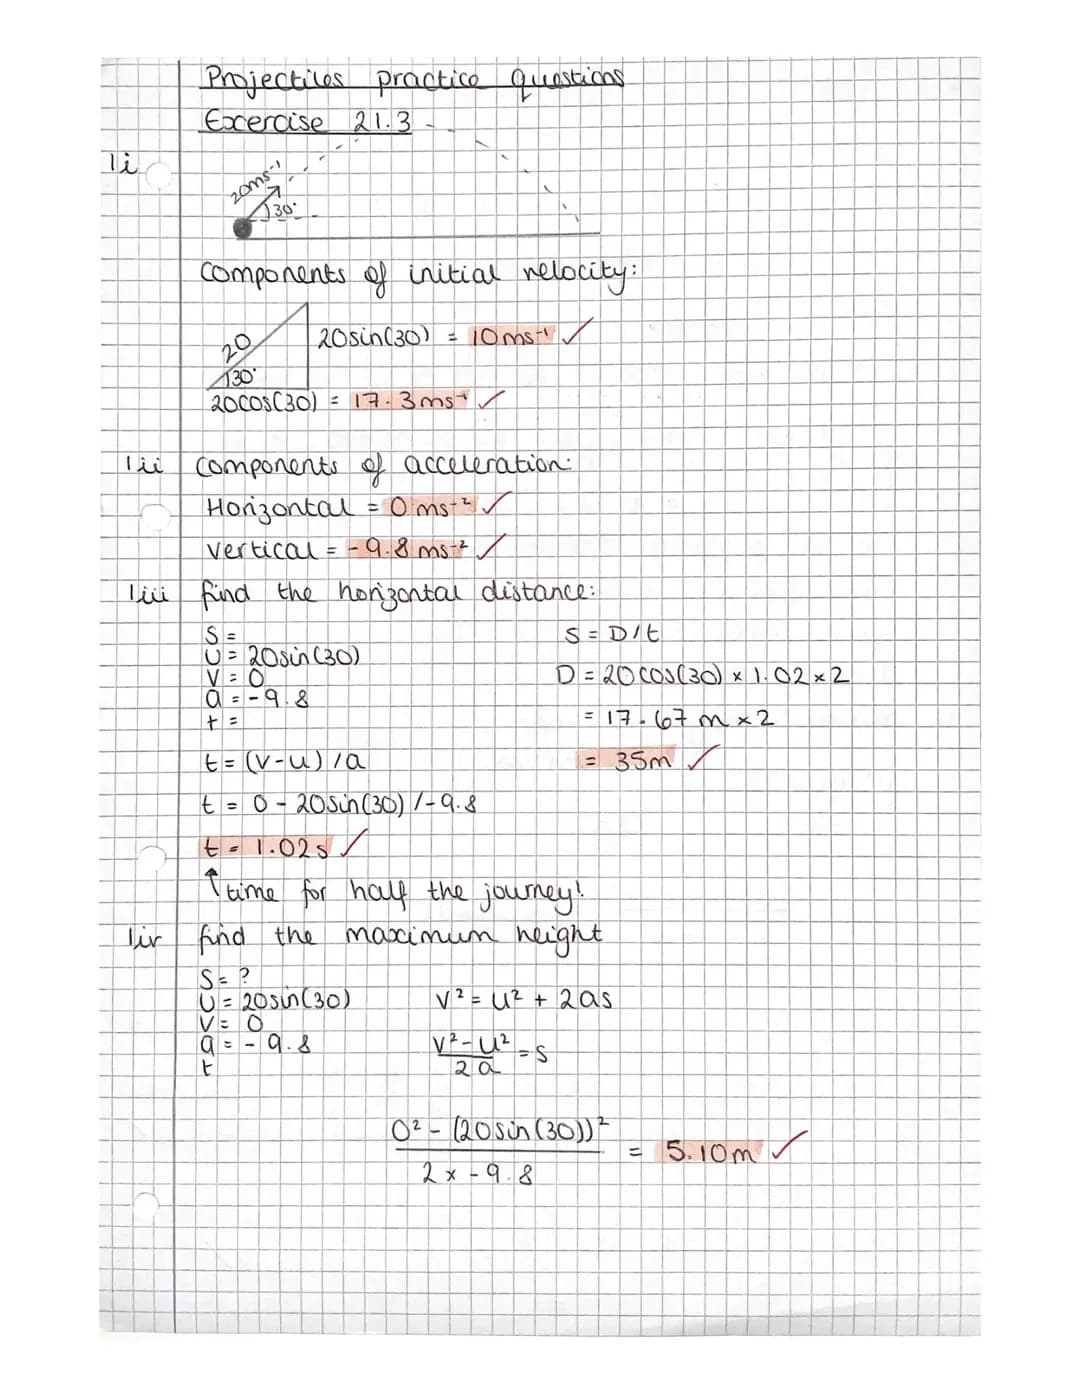 Projectiles practice questions
Exercise 21.3
1i
20ms⁻¹
30°
components of initial velocity:
20
20sin(30) = 10ms⁻¹ ✓
30°
20cos(30) = 17.3ms⁻¹ ✓
1ii components of acceleration:
Horizontal = 0ms⁻² ✓
vertical = -9.8ms⁻² ✓
1iii find the horizontal distance:
S =
U = 20sin(30)
V = 0
a = -9.8
t =
t = (v-u)/a
t = 0 - 20sin(30)/-9.8
t = 1.02s ✓
↑ time for half the journey!
S = D/t
D = 20cos(30) × 1.02 × 2
= 17.67m × 2
= 35m ✓
1iv find the maximum height
S = ?
U = 20sin(30)
V = 0
a = -9.8
t
V² = U² + 2as
V² - U² / 2a = S
0² - (20sin(30))² / 2 × -9.8 = 5.10m ✓